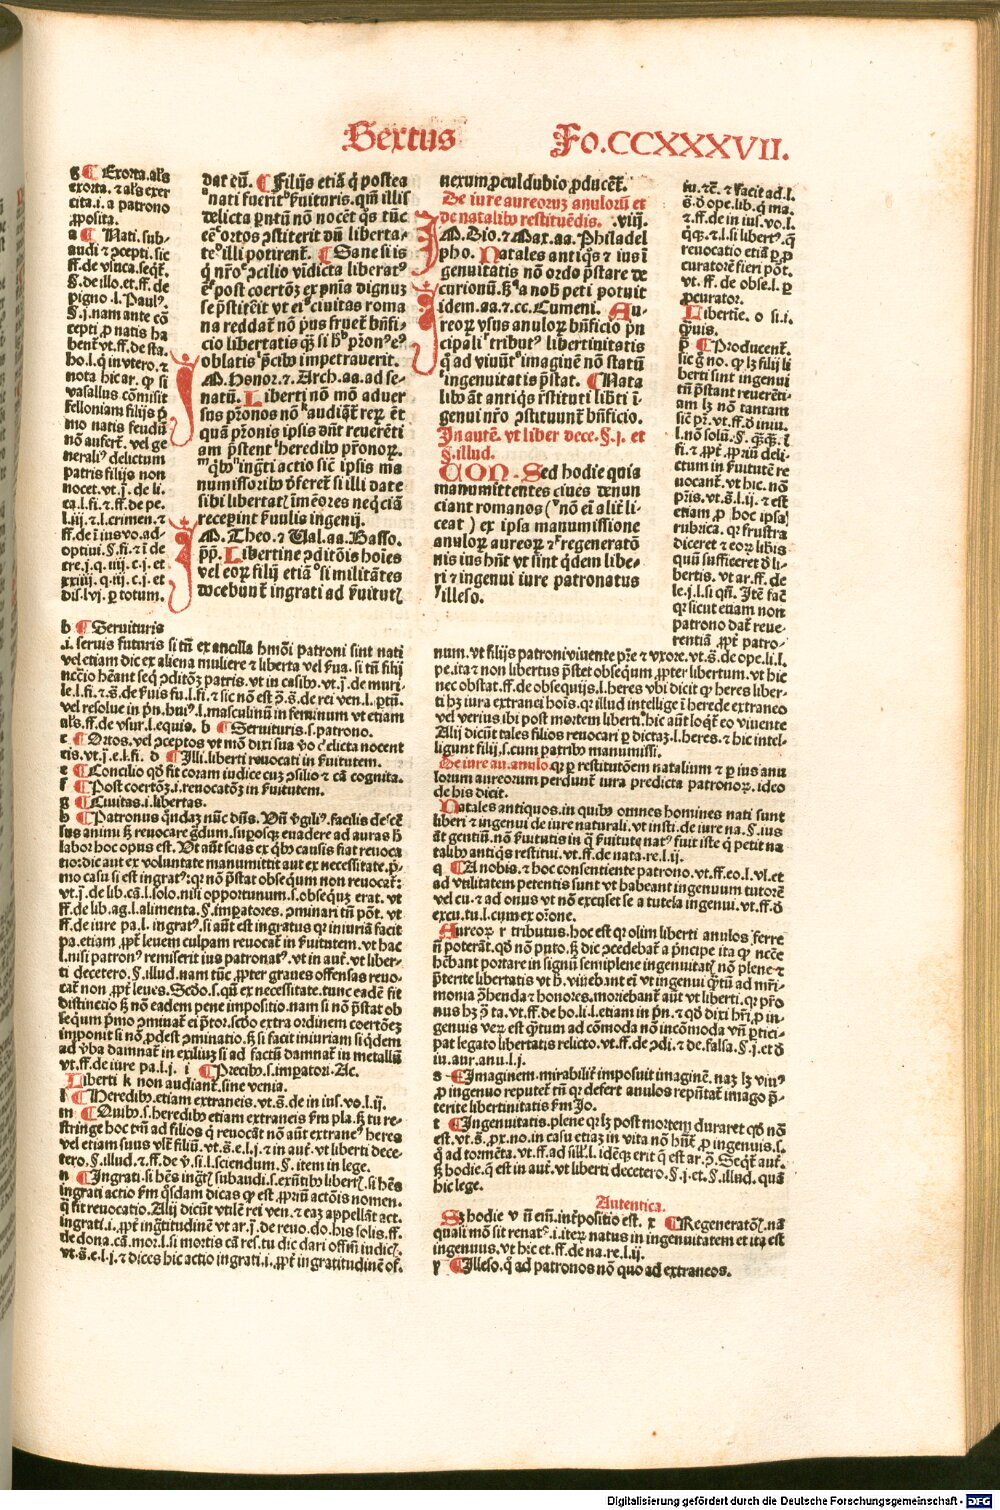 Sextus
Fo.CCXXXVII.
g ¶ Exorta. al's
exorta. ⁊ al's exer
cita. i. a patrono
ꝓposita.
a ¶ Nati. sub-
audi ⁊ ↄcepti. sic
ff. de vsuca. seqt̄.
§. de illo. et. ff. de
pigno. l. Paulꝰ.
§. j. nam ante cō
cepti ꝓ natis ha
bent̄ vt. ff. de sta.
ho. l. q̄ in vtero. ⁊
nota hic ar. ꝙ si
vasallus cōmisit
felloniam filijs p̄
mo natis feudū
nō aufert̄. vel ge
neralꝰ delictum
patris filijs non
nocet. vt. j. de li.
ca. l. fi. ⁊ ff. de pe.
l. iij. ⁊ l. crimen. ⁊
ff. de ī ius vo. ad-
optiui. §. fi. ⁊ ī de
cre. j. q. iiij. c. j. et
xxiij. q. iij. c. j. et
dis. lvj. ꝑ totum.
dat eū. ¶ Filijs etiā q̄ postea
nati fuerīt ẜuituris. qm̄ illis
delicta pn̄tū nō nocēt q̄s tūc
eēᵉ ortos ↄstiterit dū liberta-
teᵉ illi potirent̄. ¶ Sane si is
q̄ nr̄oᶠ ↄcilio vīdicta liberatꝰ
ēᵉ post coertōꝫ ex pnīa dignus
se p̄stiterit vt eiᵍ ciuitas roma
na reddat̄ nō pꝰus fruet̄ bn̄fi-
cio libertatis qꝫ si hᵇ pr̄onᵉ eᵍ
oblatisⁱ p̄cibꝫ impetrauerit.
M. Honor. ⁊. Arch. aa. ad se-
natū. Liberti nō mō aduer
sus pr̄onos nōᵏ audiāt̄ reꝝ ēt
quā pr̄onis ipsis dn̄t reuerēti
am p̄stentˡ heredibꝫ pr̄onoꝝ.
ᵐ qͥbꝫⁿ ingr̄ti actio sic̄ ipsis ma
numissoribꝫ p̄feret̄ si illi date
sibi libertatꝭ ī̄meōres neq̄ciā
receperint ẜuulis ingenij.
M. Theo. ⁊ Val. aa. Basso.
pp̄. Libertine ↄditōis hoīes
vel eoꝝ filij etiāᵒ si militātes
docebunt̄ ingrati ad ẜuitutꝭ
nexum ꝓculdubio ꝓducēt̄.
De iure aureoruꝫ anulorū et
de natalibꝫ restituēdis. viij.
M. Dio. ⁊ Max. aa. Philadel
pho. Natales antiqͥs ⁊ ius ī
genuitatis nō ordo p̄stare de
curionū. ſꝫ ᵠa nob̄ peti potuit
idem. aa. ⁊. cc. Eumeni. Au-
reoꝝ vsus anuloꝝ bn̄ficio pn̄
cipaliʳ tributꝰ libertinitatis
q̄ ad viuūtˢ imaginē nō statū
ᵗingenuitatis p̄stat. ¶ Nata
libꝫ āt antiqͥs r̄stituti lib̄ti ī-
genui nr̄o ↄstituunt̄ bn̄ficio.
In autē. vt liber dece. §. j. et
§. illud.
CON. Sed hodie quia
manumittentes ciues denun
ciant romanos (ᵛnō ei alit̄ li-
ceat) ex ipsa manumissione
anuloꝝ aureoꝝ ⁊ˣregeneratō
nis ius hn̄t vt sint q̄dem libe-
ri ⁊ ingenui iure patronatus
ʸilleso.
iu. ⁊c̄. ⁊ ẜfacit ad. l.
s. d̄ ope. lib. q̄ ma.
⁊. ff. de in iul. vo. l.
q̄qꝫ. ⁊ l. si libertꝰ. q̄
reuocatio etiā ꝑ p̄
curatorē fieri pōt.
vt. ff. de obse. l. ꝑ
ꝓcurator.
Libertīe. o si. i.
q̄uis.
p ¶ Producent̄.
sic q̄no. ꝙ lꝫ filij li
berti sint ingenui
tn̄ p̄stant reuerēti-
am lꝫ nō tantam
sic̄ pr̄. vt. ff. d̄ iniu.
l. nō solū. §. q̄cqꝫ. ī
fi. ⁊ ꝓpt̄ ꝓriū deli-
ctum in ẜuitutē re
uocant̄. vt hic. nō
pr̄is. vt. s̄. l. ij. ⁊ est
etiam ꝓ hoc ipsa
rubrica. qꝛ frustra
diceret ⁊ eoꝝ libis
quū sufficeret d̄ li-
bertis. vt ar. ff. de
le. j. l. si qn̄. Itē fac̄
qꝛ sicut etiam non
patrono dat̄ reue-
rentiā ꝓpt̄ patro-
b ¶ Seruituris
.i. seruis futuris si tn̄ ex ancilla hm̄oi patroni sint nati
vel etiam dic ex aliena muliere ⁊ liberta vel ẜua. si tn̄ filij
ncc̄io hēant seq̄ ↄditōꝫ patris. vt in casibꝫ. vt. j. de muri-
le. l. fi. ⁊ s̄. de ẜuis fu. l. fi. ⁊ sic nō est ꝯ. s̄. de rei ven. l. ptū.
vel resolue in pn̄. huiꝰ. l. masculinū in femininum vt etiam
al's. ff. de vsur. l. equis. b ¶ Seruituris. s. patrono.
c ¶ Ortos. vel ↄceptos vt mō dixi sua v̄o delicta nocent
eis. vt. j. e. l. fi. d ¶ Illi. liberti reuocati in ẜuitutem.
e ¶ Concilio qd̄ fit coram iudice cuꝫ ↄsilio ⁊ cā cognita.
f ¶ Post coertōꝫ. i. reuocatōꝫ in ẜuitutem.
g ¶ Ciuitas. i. libertas.
h ¶ Patronus q̄ndaꝫ nūc dn̄s. Vn̄ v̄giliꝰ. facilis descē
sus animi ſꝫ reuocare gdum. suposqꝫ euadere ad auras h̄
labor hoc opus est. Vt aūt scias ex qͥbꝫ causis fiat reuoca
tio: dic aut ex voluntate manumittit aut ex necessitate. p̄-
mo casu si est ingratꝰ: qꝛ nō p̄stat obsequm̄ non reuocat̄:
vt. j. de lib. cā. l. solo. nisi opportunum. s. obsequꝫ erat. vt
ff. de lib. ag. l. alimenta. §. imꝑatores. ↄminari tn̄ pōt. vt
ff. de iure pa. l. ingratꝰ. si aūt est ingratus qꝛ iniuriā facit
pa. etiam. ꝓpt̄ leuem culpam reuocat̄ in ẜuitutem. vt hac
l. nisi patronꝰ remiserit ius patronatꝰ. vt in aut̄. vt liber-
ti decetero. §. illud. nam tūc ꝓpter graues offensas reuo-
cat̄ non ꝓpt̄ leues. Scd̄o. s. qn̄ ex necessitate. tunc eadē fit
distinctio ſꝫ nō eadem pene impositio. nam si nō p̄stat ob
sequm̄ p̄mo ↄminat̄ ei p̄tor. scd̄o extra ordinem coertōeꝫ
imponit si nō ꝓdest ↄminatio. ſꝫ si facit iniuriam siqͥdem
ad v̄ba damnat̄ in exiliuꝫ si ad factū damnat̄ in metallū
vt. ff. de iure pa. l. j. i ¶ Precibꝫ. s. imꝑatori. Ac.
Liberti k non audiant̄. sine venia.
l ¶ Heredibꝫ. etiam extraneis. vt. s̄. de in ius. vo. l. ij.
m ¶ Quibꝫ. s. heredibꝫ etiam extraneis ẜm pla. ſꝫ tu re-
stringe hoc tm̄ ad filios q̄ reuocāt nō aūt extraneꝰ heres
vel etiam suus vlr̄ filiū. vt. s̄. e. l. j. ⁊ in aut̄. vt liberti dece-
tero. §. illud. ⁊. ff. de v̄. si. l. sciendum. §. item in lege.
n ¶ Ingrati. si hēs ingr̄tꝭ subaudi. s. exn̄tibꝫ libertꝭ. si hēs
ingrati actio ẜm q̄sdam dicas ꝙ est ꝓpriū actōis nomen.
q̄ fit reuocatio. Alij dicūt vtilē rei ven. ⁊ eaꝫ appellāt act.
ingrati. i. ꝓpt̄ ingr̄titudinē vt ar. j. de reuo. do. his solis. ff.
de dona. cā. mor. l. si mortis cā res. tu dic dari offm̄ iudicꝭ.
vt. s̄. e. l. j. ⁊ dices hic actio ingrati. i. ꝓpt̄ ingratitudinē of.
num. vt ẜfilijs patroni viuente pr̄e ⁊ vxore. vt. s̄. de ope. li. l.
pe. ita ⁊ non libertus p̄stet obsequm̄ ꝓpter libertum. vt hic
nec obstat. ff. de obsequijs. l. heres vbi dicit ꝙ heres liber-
ti hꝫ iura extranei hois. qꝛ illud intellige ī herede extraneo
vel verius ibi post mortem liberti. hic aūt loqt̄ eo viuente
Alij dicūt tales filios reuocari ꝑ dictaꝫ. l. heres. ⁊ hic intel-
ligunt filij. s. cum patribꝫ manumissi.
De iure au. anulo. qꝛ ꝑ restitutōem natalium ⁊ ꝑ ius anu
lorum aureorum perdunt̄ iura predicta patronoꝝ. ideo
de his dicit.
Natales antiquos. in quibꝫ omnes homines nati sunt
liberi ⁊ ingenui de iure naturali. vt insti. de iure na. §. ius
āt gentiū. nō ẜuitutis in q̄ ẜuitute natꝰ fuit iste q̄ petit na
talibꝫ antiqͥs restitui. vt. ff. de nata. re. l. ij.
q ¶ A nobis. ⁊ hoc consentiente patrono. vt. ff. eo. l. vl. et
ad vtilitatem petentis sunt vt habeant ingenuum tutorē
vel cu. ⁊ ad onus vt nō excuset se a tutela ingenui. vt. ff. d̄
excu. tu. l. cum ex or̄one.
Aureoꝝ r tributus. hoc est qꝛ olim liberti anulos ferre
n̄ poterāt. qd̄ nō puto. ſꝫ dic ↄcedebat̄ a p̄ncipe ita ꝙ necc̄e
hēbant portare in signū semiplene ingenuitatꝭ nō plene ⁊
p̄terite libertatis vt h̄. viuebant em̄ vt ingenui q̄tū ad mr̄i-
monia ↄ̄henda ⁊ honores. moriebant̄ aūt vt liberti. qꝛ pr̄o
nus hꝫ ꝯ ta. vt. ff. de ho. li. l. etiam in pn̄. ⁊ qd̄ dixi hr̄i ꝓ in-
genuis veꝝ est q̄tum ad cōmoda nō incōmoda vn̄ ꝑtici-
pat legato libertatis relicto. vt. ff. de ↄdi. ⁊ de. falsa. §. j. et d̄
iu. aur. anu. l. j.
s ¶ Imaginem. mirabilit̄ imposuit imaginē. naꝫ lꝫ viuꝰ
ꝓ ingenuo reputet̄ tn̄ qꝛ defert anulos repn̄tat̄ imago p̄-
terite libertinitatis ẜm Jo.
t ¶ Ingenuitatis. plene qꝛ lꝫ post mortem duraret qd̄ nō
est. vt. s̄. ꝓx. no. in casu etiaꝫ in vita nō hn̄t̄ ꝓ ingenuis. s.
q̄ ad tormēta. vt. ff. ad sill'. l. idēqꝫ erit q̄ est ar. ꝯ. Seqt̄ aut̄.
ſꝫ hodie. q̄ est in aut̄. vt liberti decetero. §. j. et. §. illud. quā
hic lege.
Autentica.
Sꝫ hodie v n̄ em̄. int̄positio est. x ¶ Regeneratōꝭ. nā
quali mō sit renatꝰ. i. iteꝝ natus in ingenuitatem et ita est
ingenuus. vt hic et. ff. de na. re. l. ij.
y ¶ Illeso. q̄ ad patronos nō quo ad extraneos.
Digitalisierung gefördert durch die Deutsche Forschungsgemeinschaft - DFG